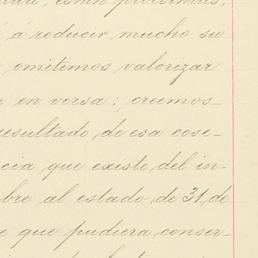 están próximas,
á reducir mucho su
omitimos valorizar
en versa: creemos
resultado de esa cose-
cia que existe del in-
bre al estado de 31, de
e que pudiera conser-